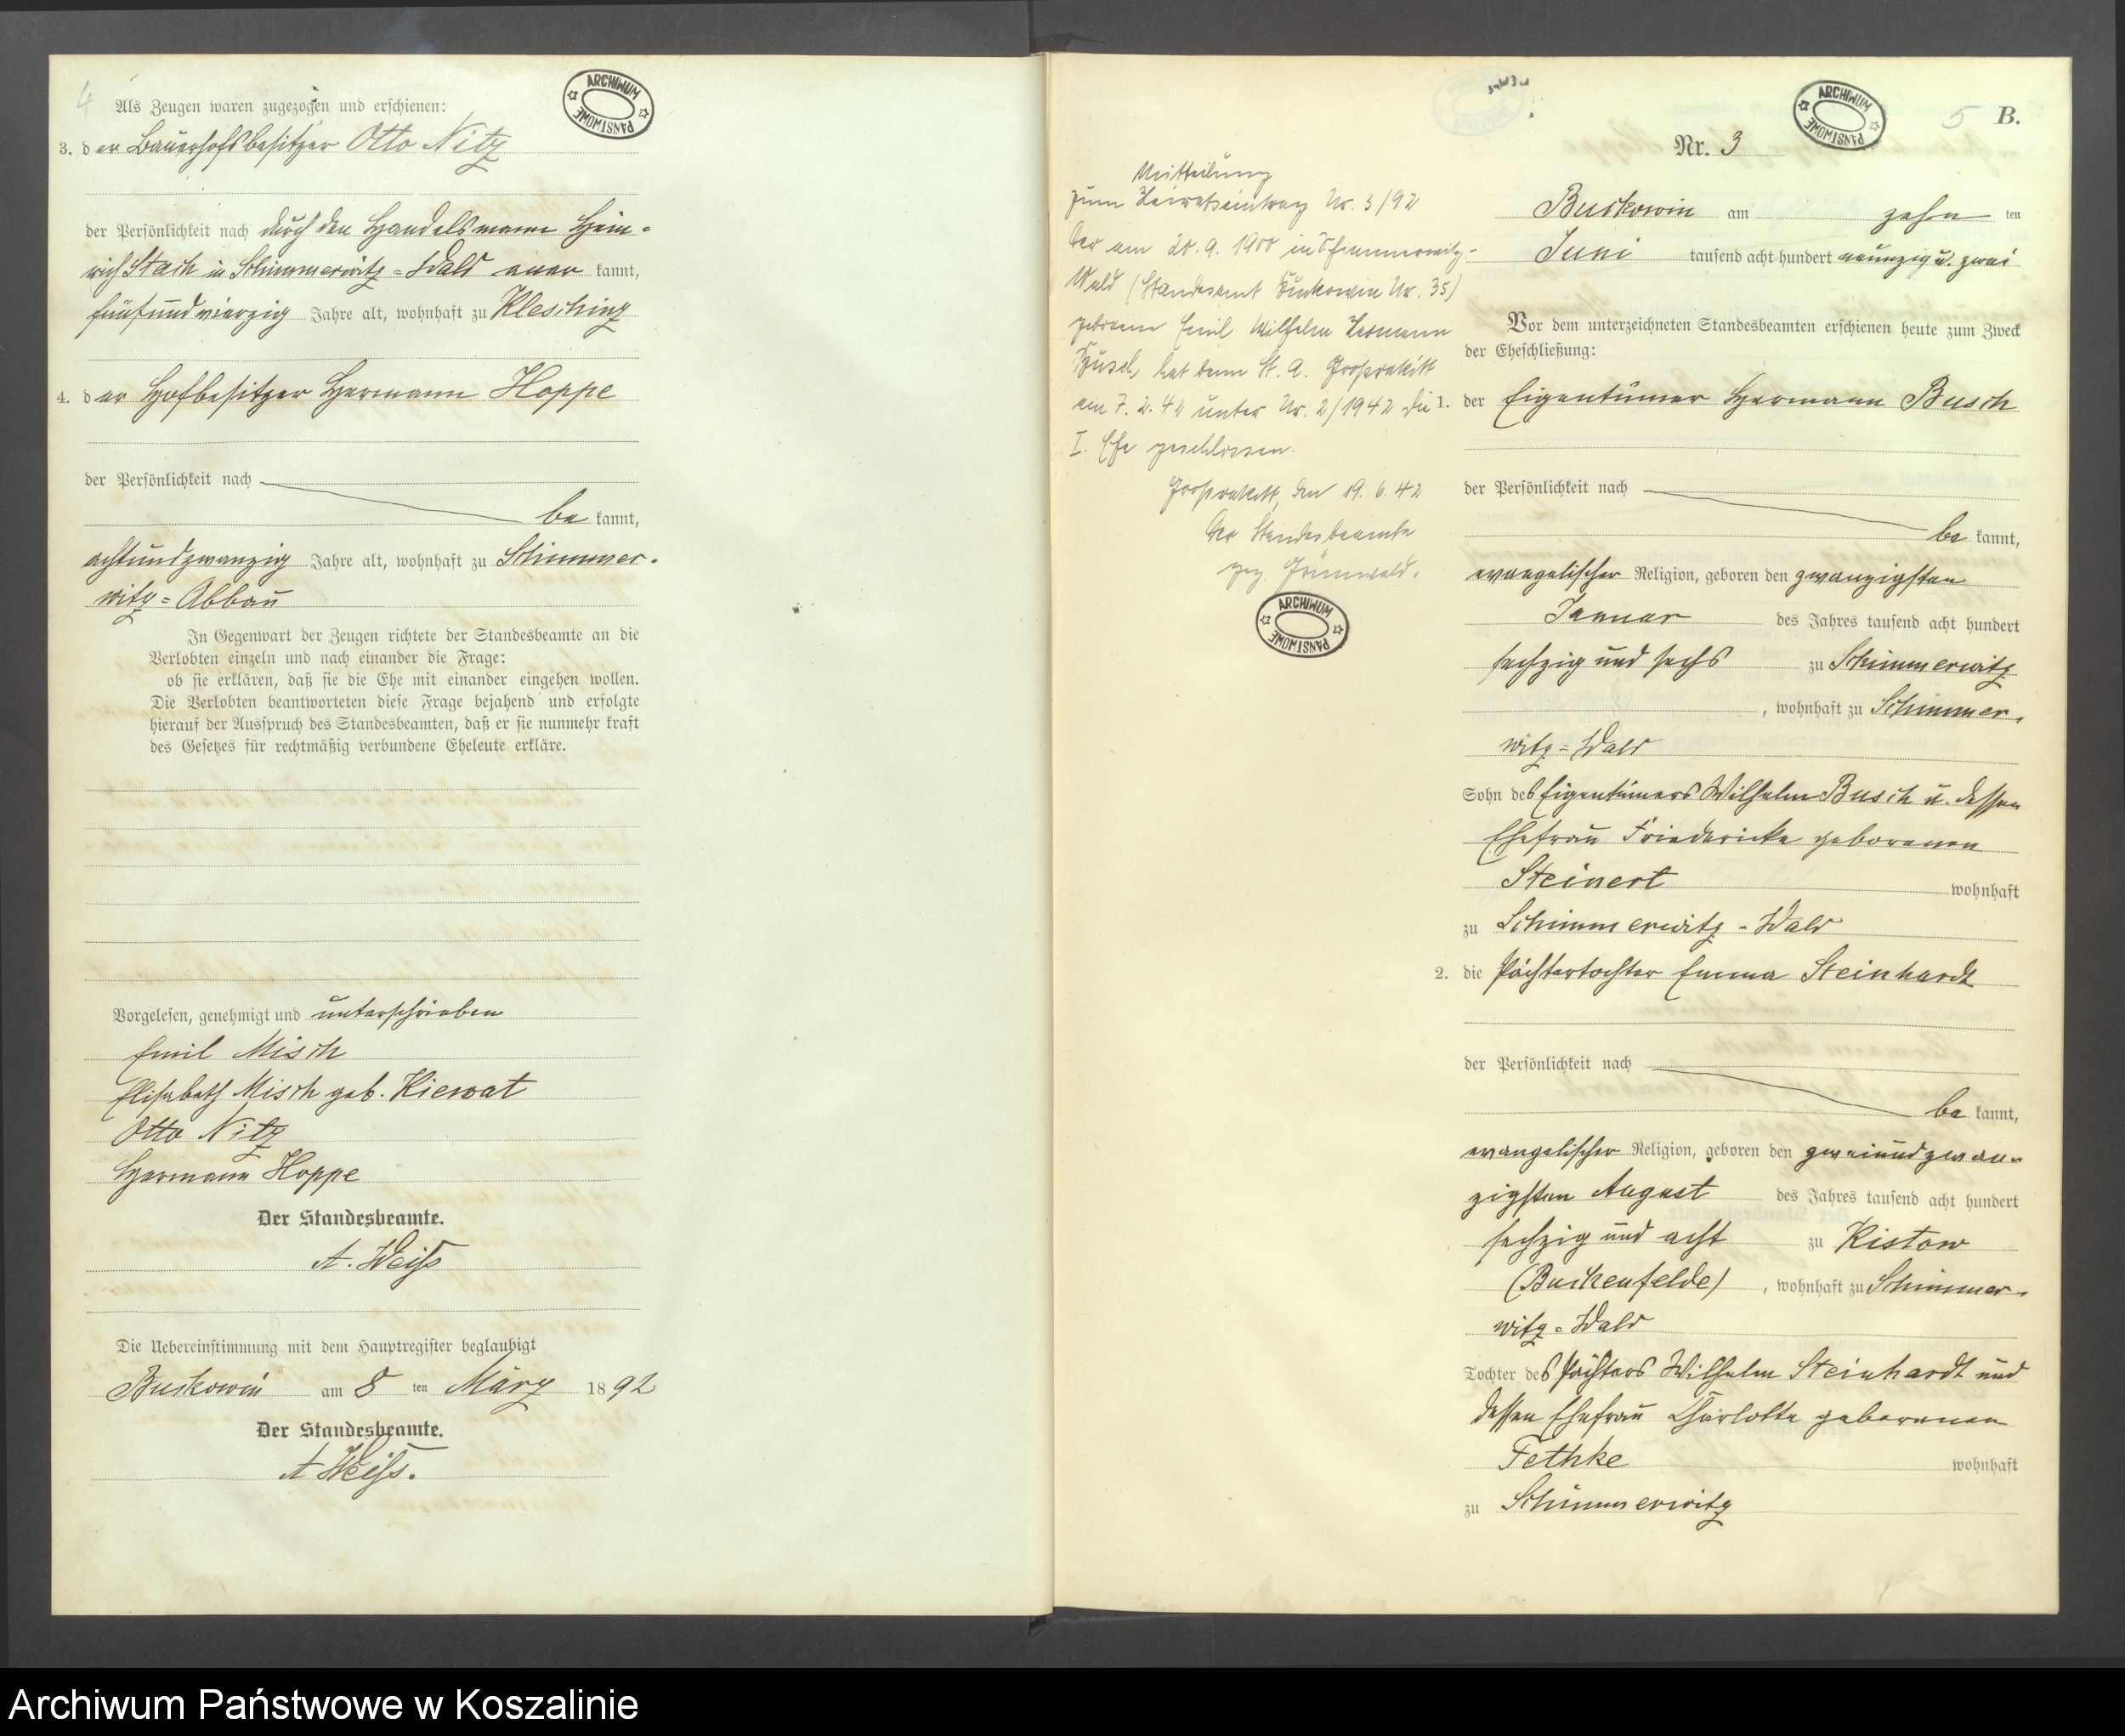 4
Als Zeugen waren zugezogen und erschienen:
ARCHIWUM PAŃSTWOWE
3. der Bauerhofsbesitzer Otto Nitz
der Persönlichkeit nach durch den Handelsmann Hein=
rich Stach in Schimmerwitz=Wald aner kannt,
fünfundvierzig Jahre alt, wohnhaft zu Klesching
4. der Hofbesitzer Hermann Hoppe
der Persönlichkeit nach
be kannt,
achtundzwanzig Jahre alt, wohnhaft zu Schimmer=
witz=Abbau
In Gegenwart der Zeugen richtete der Standesbeamte an die
Verlobten einzeln und nach einander die Frage:
ob sie erklären, daß sie die Ehe mit einander eingehen wollen.
Die Verlobten beantworteten diese Frage bejahend und erfolgte
hierauf der Ausspruch des Standesbeamten, daß er sie nunmehr kraft
des Gesetzes für rechtmäßig verbundene Eheleute erkläre.
Vorgelesen, genehmigt und unterschrieben
Emil Misch
Elisabeth Misch geb. Kiewat
Otto Nitz
Hermann Hoppe
Der Standesbeamte.
A. Weiß
Die Uebereinstimmung mit dem Hauptregister beglaubigt
Buckowin am 8 ten März 1892
Der Standesbeamte.
A Weiß.
Mitteilung
zum Heiratseintrag Nr. 3/92
Der am 20.9.1900 in Schimmerwitz-
Wald (Standesamt Buckowin Nr. 35)
geborene Emil Wilhelm Hermann
Busch, hat beim St. A. Großrakitt
am 7.2.42 unter Nr. 2/1942 die
I. Ehe geschlossen.
Großrakitt, den 19.6.42
Der Standesbeamte
gez. Grünwald.
ARCHIWUM PAŃSTWOWE
ARCHIWUM PAŃSTWOWE
5 B.
Nr. 3
Buckowin am zehn ten
Juni tausend acht hundert neunzig u. zwei
Vor dem unterzeichneten Standesbeamten erschienen heute zum Zweck
der Eheschließung:
1. der Eigentümer Hermann Busch
der Persönlichkeit nach
be kannt,
evangelischer Religion, geboren den zwanzigsten
Januar des Jahres tausend acht hundert
sechzig und sechs zu Schimmerwitz
, wohnhaft zu Schimmer=
witz=Wald
Sohn des Eigentümers Wilhelm Busch u. dessen
Ehefrau Friedericke geborenen
Steinert wohnhaft
zu Schimmerwitz-Wald
2. die Pächtertochter Emma Steinhardt
der Persönlichkeit nach
be kannt,
evangelischer Religion, geboren den zweiundzwan=
zigsten August des Jahres tausend acht hundert
sechzig und acht zu Ristow
(Buckenfelde) , wohnhaft zu Schimmer=
witz=Wald
Tochter des Pächters Wilhelm Steinhardt und
dessen Ehefrau Charlotte geborenen
Fethke wohnhaft
zu Schimmerwitz
Archiwum Państwowe w Koszalinie